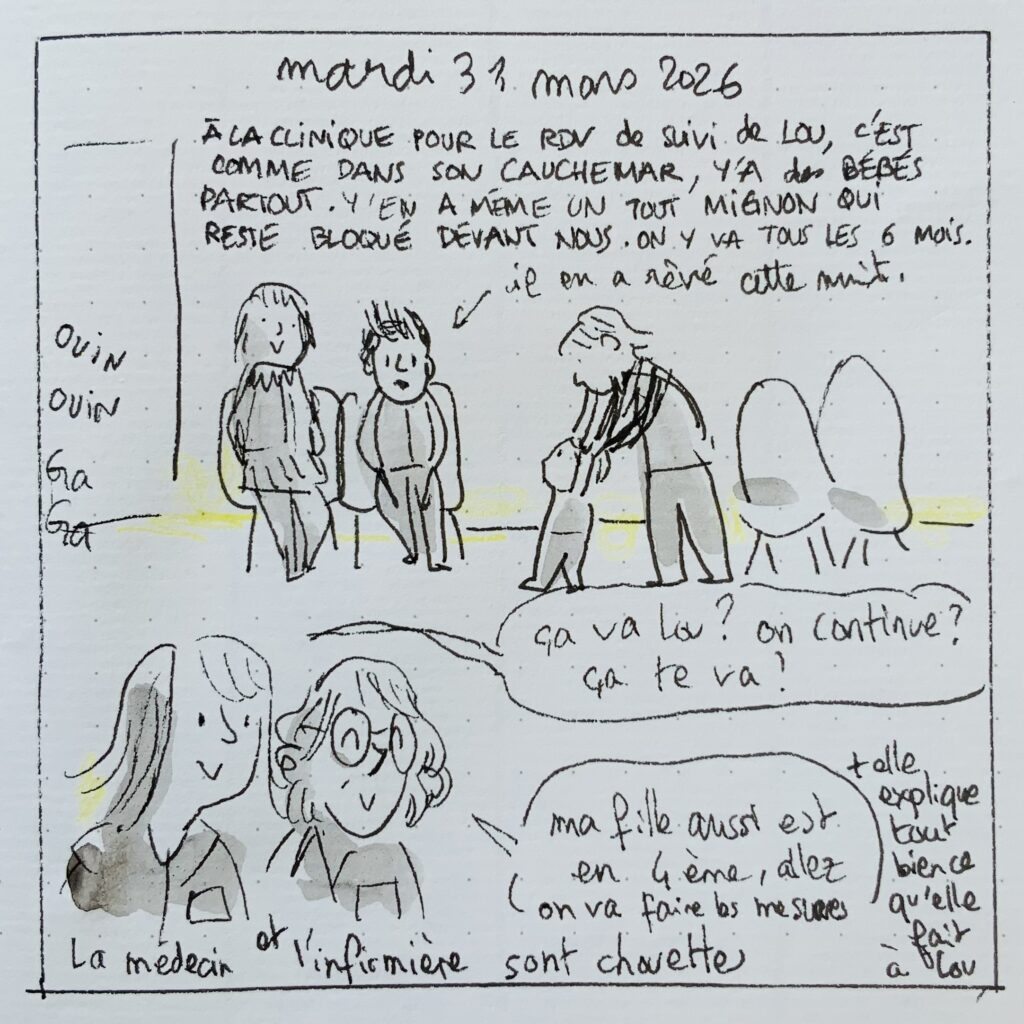 mardi 31 mars 2026
À LA CLINIQUE POUR LE RDV de suivi de LOU, C'EST
COMME DANS SON CAUCHEMAR, Y'A des BÉBÉS
PARTOUT. Y'EN A MÊME UN TOUT MIGNON QUI
RESTE BLOQUÉ DEVANT NOUS. ON Y VA TOUS LES 6 MOIS.
il en a rêvé cette nuit.
OUIN
OUIN
Ga
Ga
ça va Lou? on continue?
ça te va?
ma fille aussi est
en 4ème, allez
on va faire les mesures
+ elle
explique
tout
bien ce
qu'elle
fait
à Lou
La médecin et l'infirmière sont chouettes